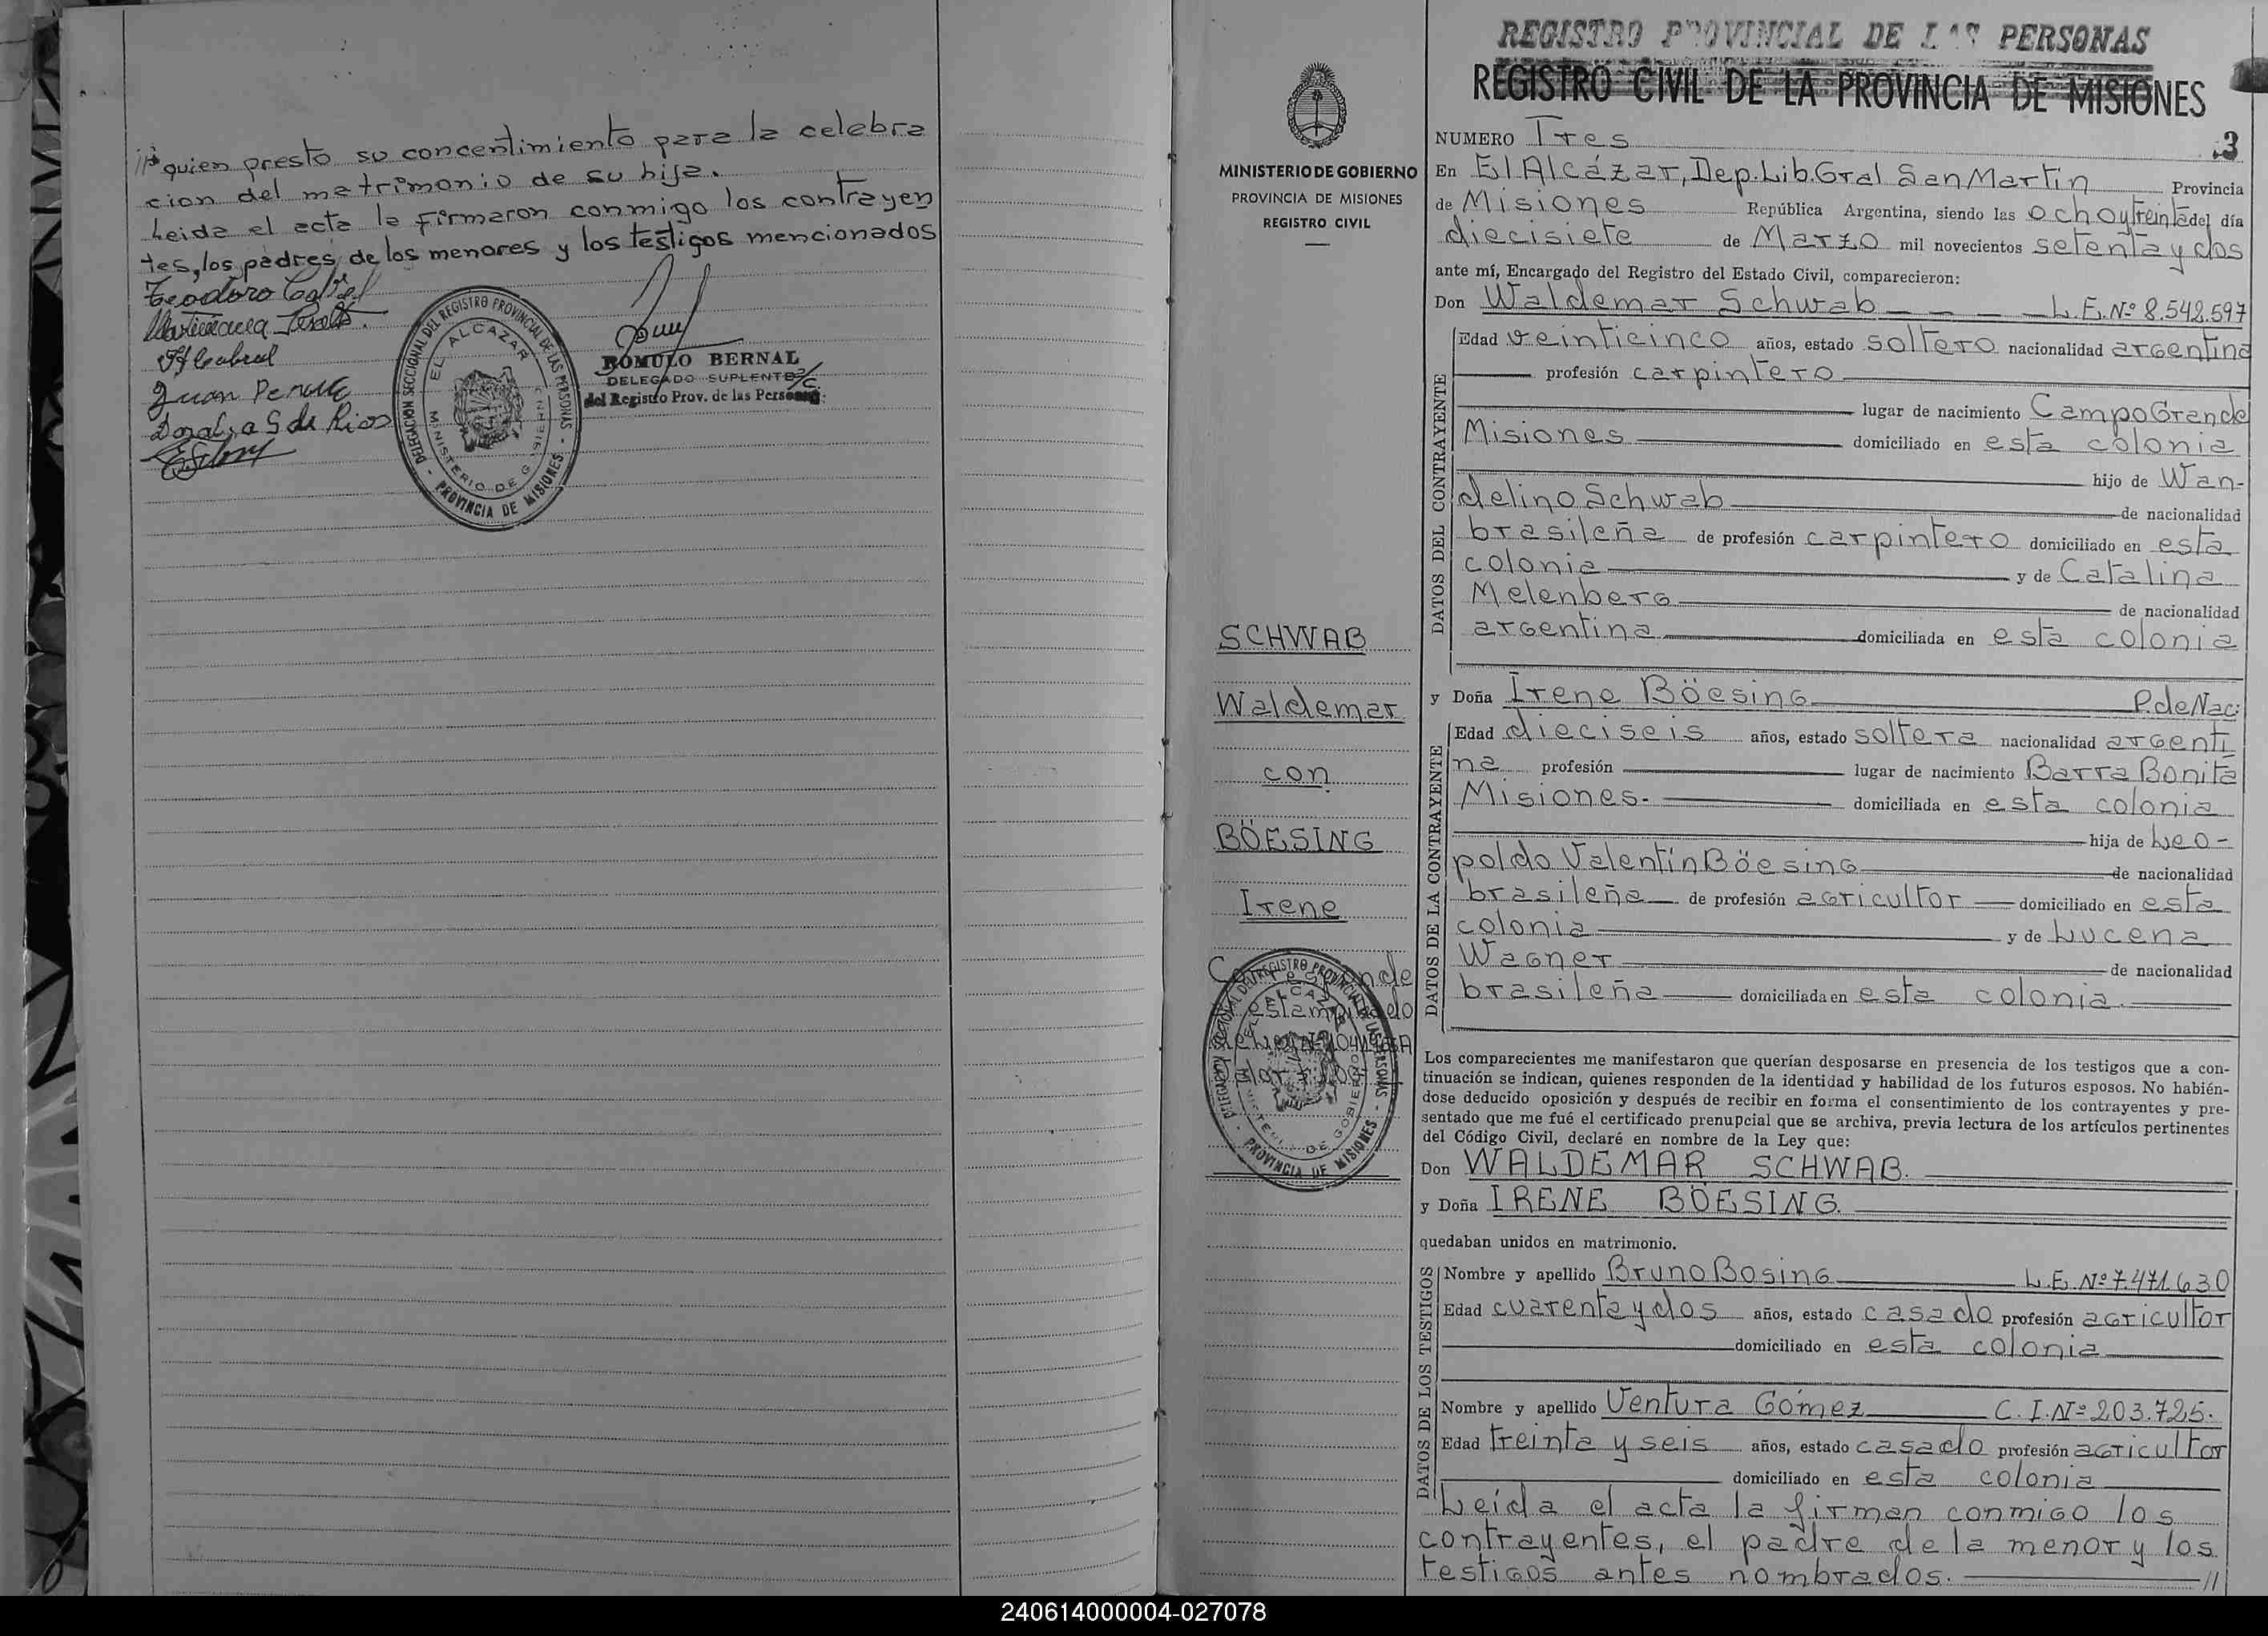 quien presto su concentimiento para la celebra
cion del matrimonio de su hija.
Leida el acta la firmaron conmigo los contrayen
tes, los padres de los menores y los testigos mencionados
Teodoro Cabral
Juan
Doralisa G de Rios
DELEGACION SECCIONAL DEL REGISTRO PROVINCIAL DE LAS PERSONAS - PROVINCIA DE MISIONES -
EL ALCAZAR
MINISTERIO DE GOBIERNO
ROMULO BERNAL
DELEGADO SUPLENTE
del Registro Prov. de las Personas
REGISTRO PROVINCIAL DE LAS PERSONAS
REGISTRO CIVIL DE LA PROVINCIA DE MISIONES
MINISTERIO DE GOBIERNO
PROVINCIA DE MISIONES
REGISTRO CIVIL
SCHWAB
Waldemar
con
BÖESING
Irene
DELEGACION SECCIONAL DEL REGISTRO PROVINCIAL DE LAS PERSONAS - PROVINCIA DE MISIONES -
EL ALCAZAR
MINISTERIO DE GOBIERNO
NUMERO Tres 3
En El Alcázar, Dep. Lib. Gral San Martin Provincia
de Misiones República Argentina, siendo las ocho y treinta del día
diecisiete de Marzo mil novecientos setenta y dos
ante mí, Encargado del Registro del Estado Civil, comparecieron:
Don Waldemar Schwab - - - L.E. Nº 8.542.597
DATOS DEL CONTRAYENTE
Edad veinticinco años, estado soltero nacionalidad argentina
profesión carpintero
lugar de nacimiento Campo Grande
Misiones domiciliado en esta colonia
hijo de Wan-
delino Schwab de nacionalidad
brasileña de profesión carpintero domiciliado en esta
colonia y de Catalina
Melenberg de nacionalidad
argentina domiciliada en esta colonia
y Doña Irene Böesing P. de Nac.
DATOS DE LA CONTRAYENTE
Edad dieciseis años, estado soltera nacionalidad argenti
na profesión lugar de nacimiento Barra Bonita
Misiones.- domiciliada en esta colonia
hija de Leo-
poldo Valentín Böesing de nacionalidad
brasileña de profesión agricultor domiciliado en esta
colonia y de Lucena
Wagner de nacionalidad
brasileña domiciliada en esta colonia.
Los comparecientes me manifestaron que querían desposarse en presencia de los testigos que a con-
tinuación se indican, quienes responden de la identidad y habilidad de los futuros esposos. No habién-
dose deducido oposición y después de recibir en forma el consentimiento de los contrayentes y pre-
sentado que me fué el certificado prenupcial que se archiva, previa lectura de los artículos pertinentes
del Código Civil, declaré en nombre de la Ley que:
Don WALDEMAR SCHWAB.
y Doña IRENE BÖESING.
quedaban unidos en matrimonio.
DATOS DE LOS TESTIGOS
Nombre y apellido Bruno Bosing L.E. Nº 7.471.630
Edad cuarenta y dos años, estado casado profesión agricultor
domiciliado en esta colonia
Nombre y apellido Ventura Gómez C.I. Nº 203.725.
Edad treinta y seis años, estado casado profesión agricultor
domiciliado en esta colonia
Leída el acta la firman conmigo los
contrayentes, el padre de la menor y los
testigos antes nombrados. //
240614000004-027078